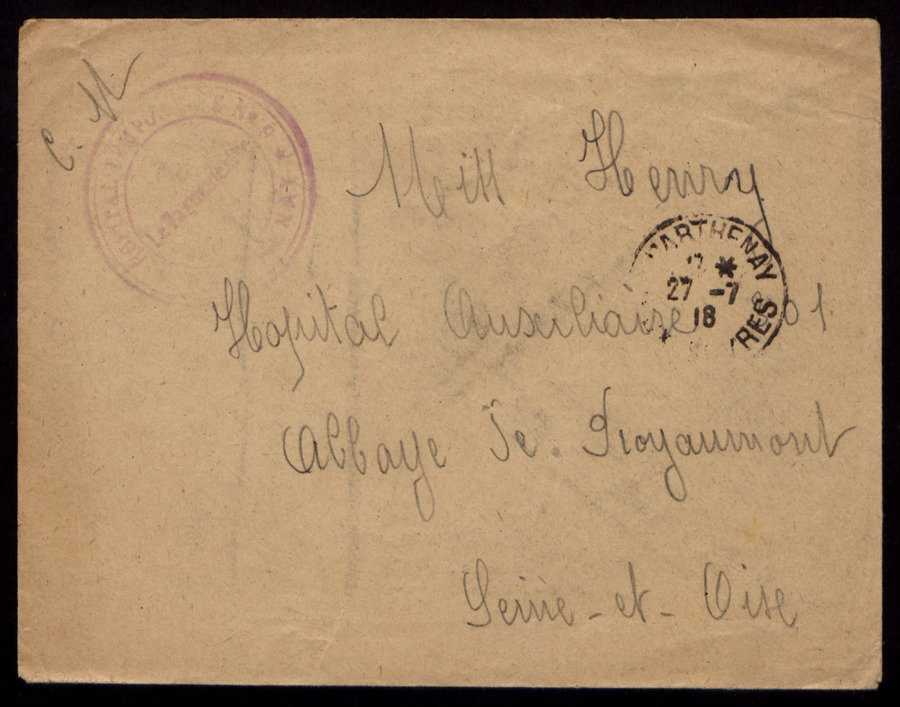 C. M
HOPITAL TEMPORAIRE No 9 ★
Mlle Henry
PARTHENAY
* 
27 -7
18
RES
Hopital Auxiliaire 01
Abbaye de Royaumont
Seine-et-Oise